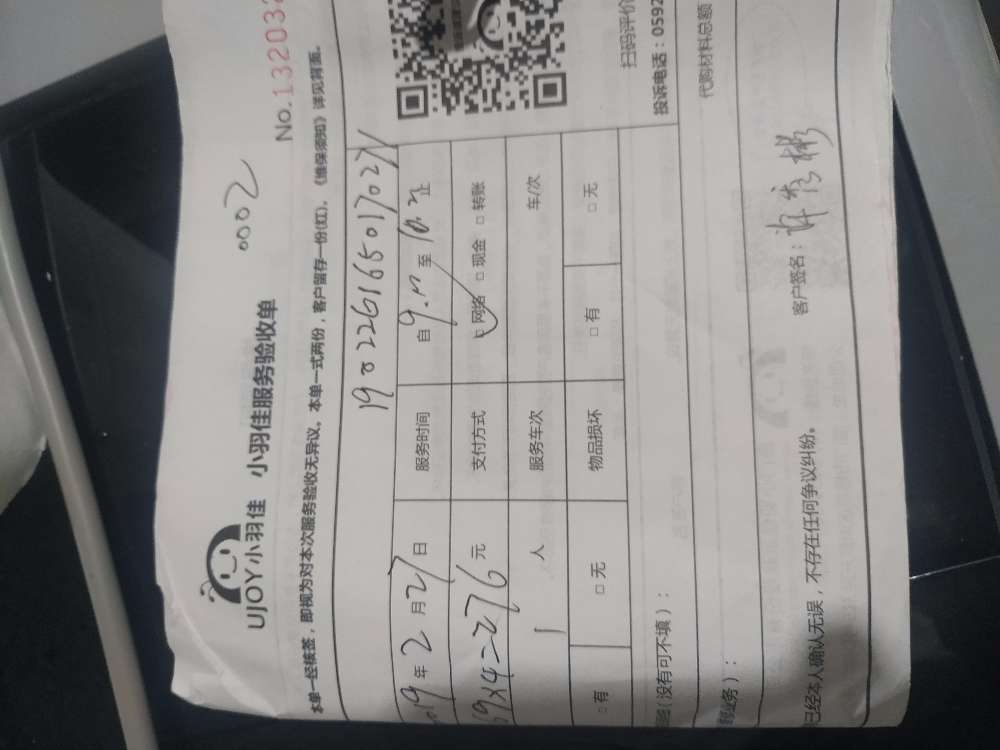 UJOY小羽佳 小羽佳服务验收单
0002
No.132032
本单一经核签，即视为对本次服务验收无异议。本单一式两份，客户留存一份(红)。《维保须知》详见背面。
19年2月27日 服务时间 自 至 止
69×4=276元 支付方式 网络 □现金 □转账
1人 服务车次 车/次
□有 □无 物品损坏 □有 □无
扫码评价
投诉电话：0592
(没有可不填)：
代购材料总额
业务)：
已经本人确认无误，不存在任何争议纠纷。 客户签名：